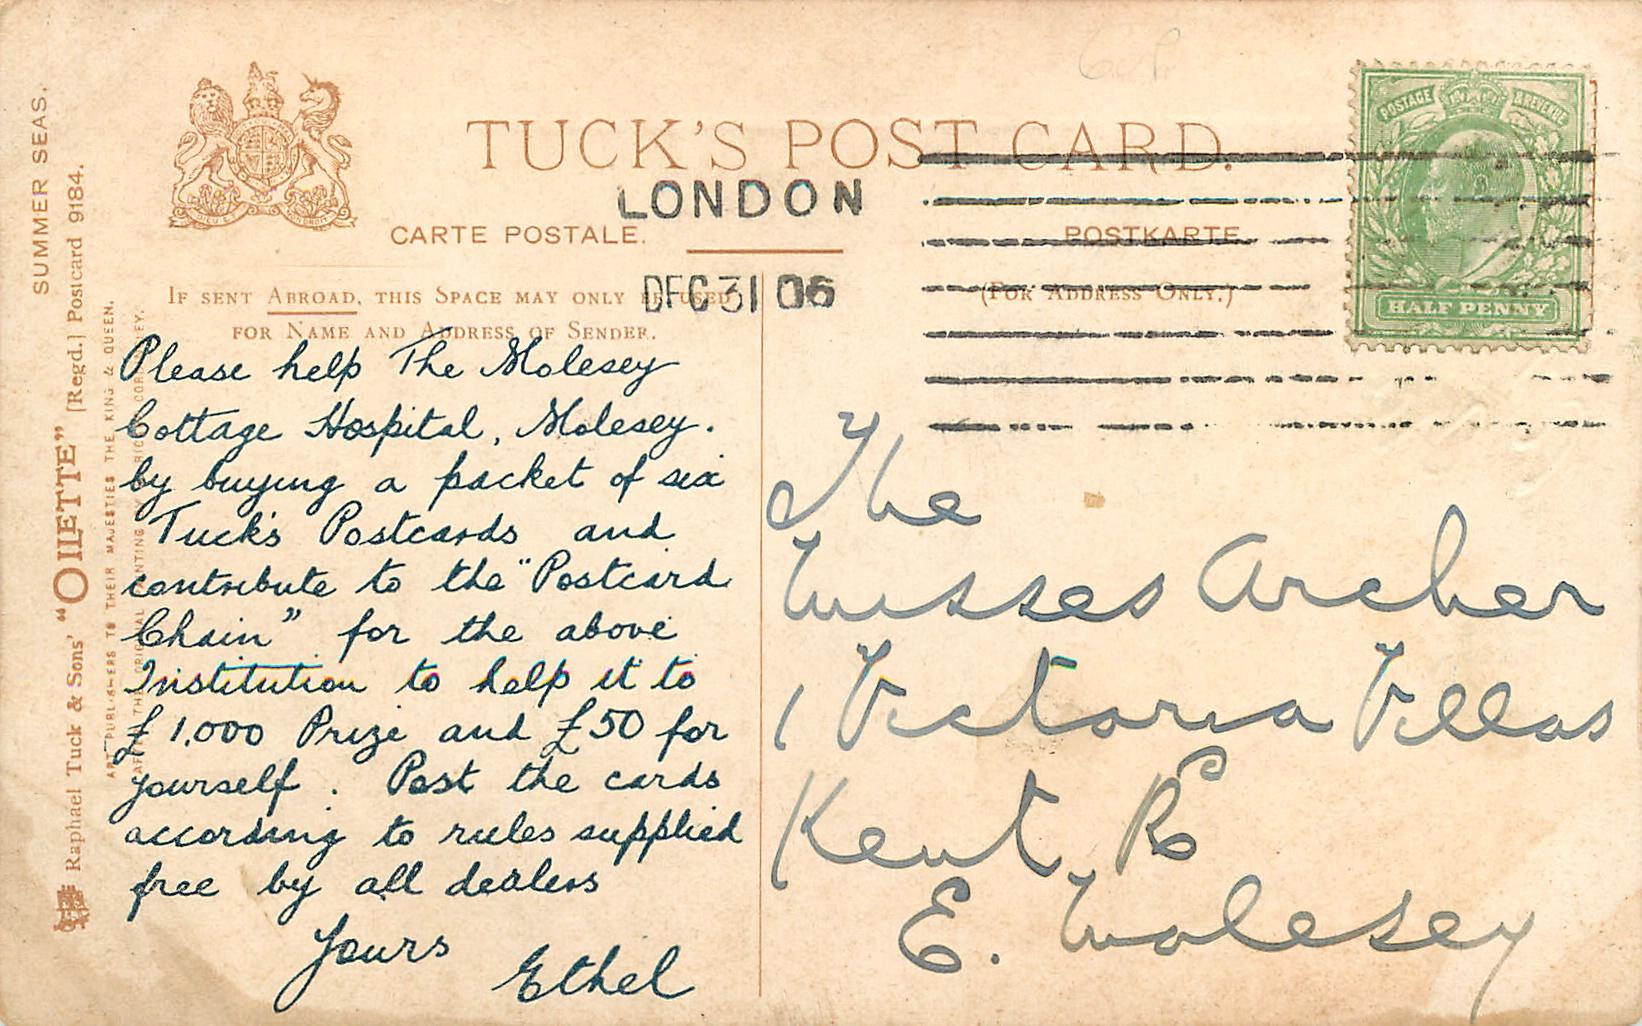 TUCK'S POST CARD.
LONDON
CARTE POSTALE.
POSTKARTE
DEC 31 06
IF SENT ABROAD, THIS SPACE MAY ONLY BE USED
FOR NAME AND ADDRESS OF SENDER.
(FOR ADDRESS ONLY.)
POSTAGE & REVENUE
HALF PENNY
SUMMER SEAS.
Raphael Tuck & Sons' "OILETTE" [Regd.] Postcard 9184.
ART PUBLISHERS TO THEIR MAJESTIES THE KING & QUEEN.
Please help The Molesey
Cottage Hospital, Molesey.
by buying a packet of six
Tuck's Postcards and
contribute to the "Postcard
Chain" for the above
Institution to help it to
£1.000 Prize and £50 for
yourself. Post the cards
according to rules supplied
free by all dealers
Yours
Ethel
The
Misses Archer
1 Victoria Villas
Kent R
E. Molesey